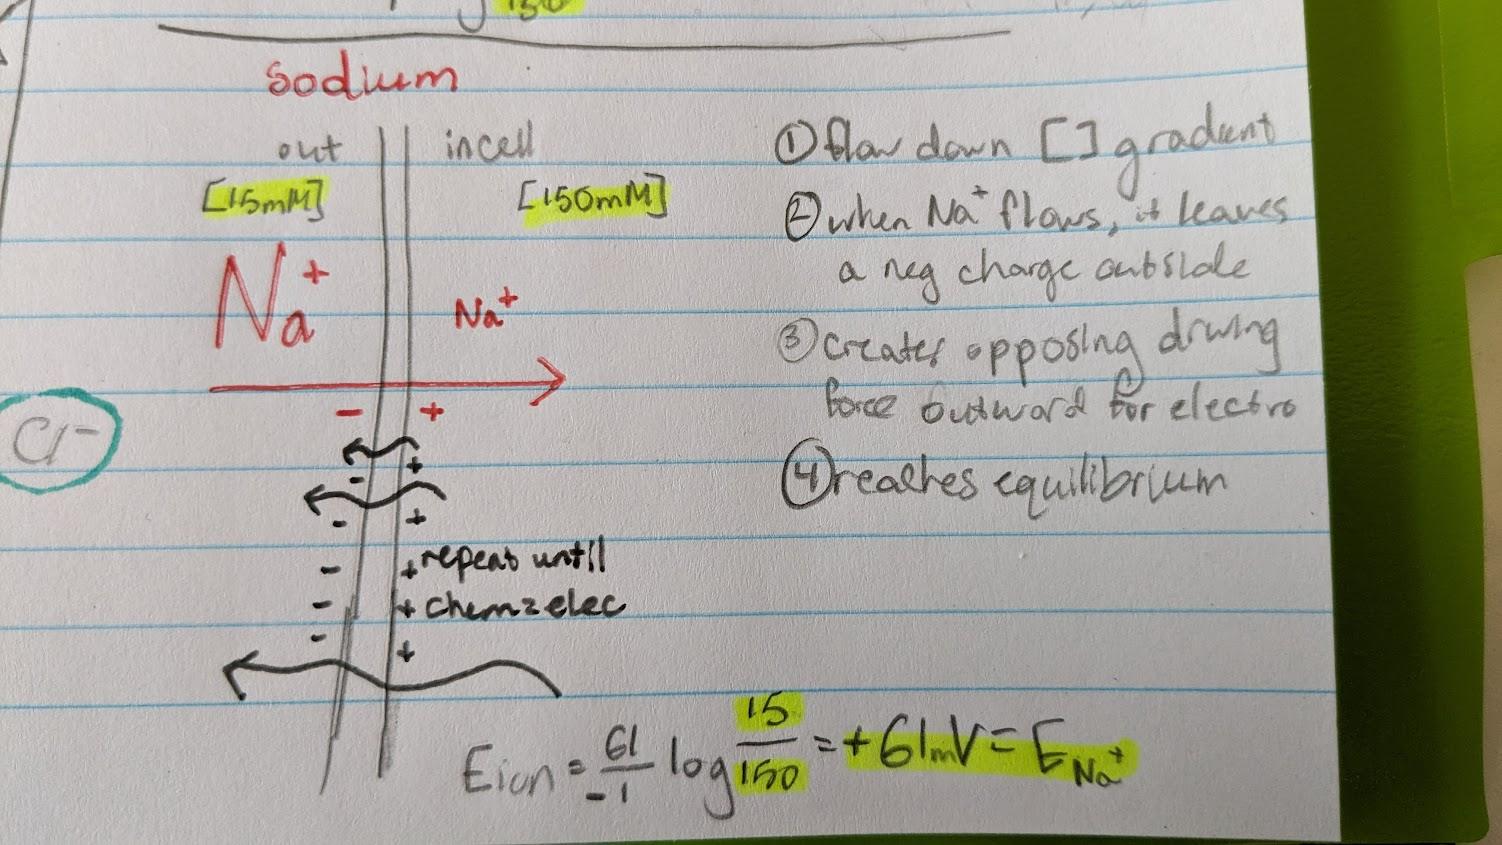 150
sodium
out in cell
[15mM] [150mM]
Na+ Na+
- +
- +
- +
- + repeat until
- + chem = elec
- +
Cl-
① flow down [ ] gradient
② when Na+ flows, it leaves
a neg charge outside
③ creates opposing driving
force outward for electro
④ reaches equilibrium
Eion = 61/-1 log 15/150 = +61mV = ENa+